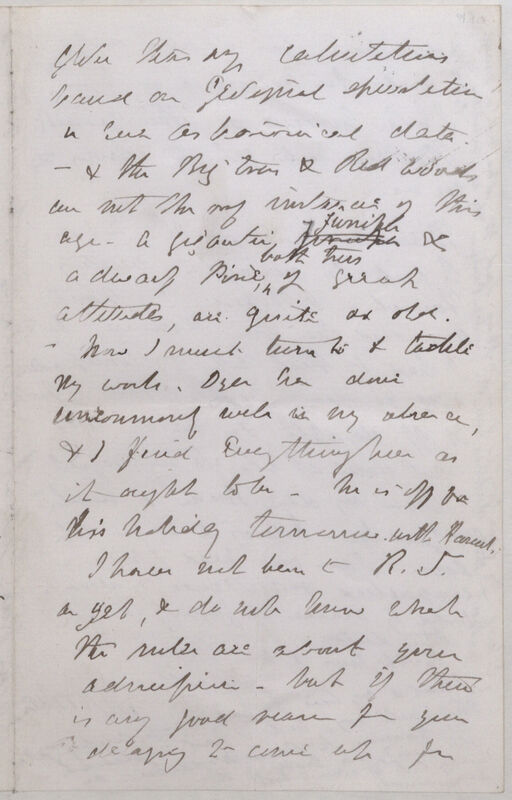 older than any calculations
based on Geological speculation
or even astronomical data.
— & the Big trees & Red woods
are not the only instances of this
age — a gigantic Juniper &
a dwarf Pine, both trees of great
altitudes, are quite as old.
— Now I must turn to & tackle
my work. Dyer has done
uncommonly well in my absence,
& I find everything here as
it ought to be — he is off for
his holiday tomorrow. with Harriet.
I have not been to R. S.
as yet, & do not know what
the rules are about your
admission — but if there
is any good reason for your
delaying to come up for